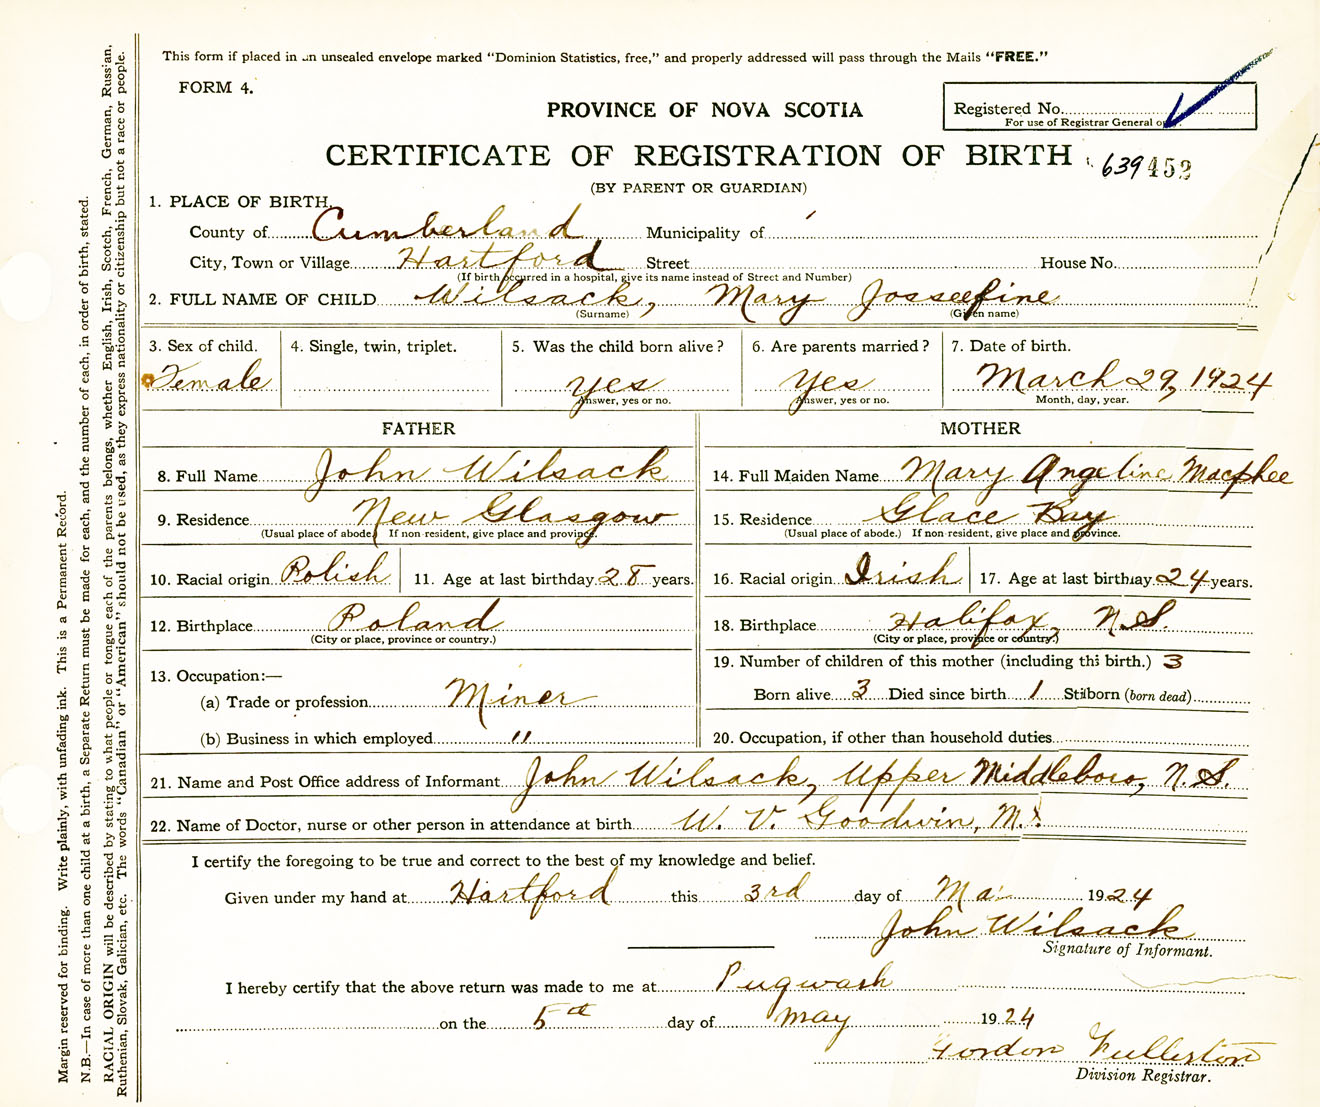 This form if placed in an unsealed envelope marked "Dominion Statistics, free," and properly addressed will pass through the Mails "FREE."
FORM 4.
Registered No.
For use of Registrar General
PROVINCE OF NOVA SCOTIA
CERTIFICATE OF REGISTRATION OF BIRTH
639 452
(BY PARENT OR GUARDIAN)
1. PLACE OF BIRTH.
County of Cumberland Municipality of
City, Town or Village Hartford Street House No.
(If birth occurred in a hospital, give its name instead of Street and Number)
2. FULL NAME OF CHILD Wilsack, Mary Josseefine
(Surname) (Given name)
3. Sex of child. 4. Single, twin, triplet. 5. Was the child born alive? 6. Are parents married? 7. Date of birth.
Female yes Yes March 29, 1924
Answer, yes or no. Answer, yes or no. Month, day, year.
FATHER MOTHER
8. Full Name John Wilsack 14. Full Maiden Name Mary Angeline Macphee
9. Residence New Glasgow 15. Residence Glace Bay
(Usual place of abode.) If non-resident, give place and province. (Usual place of abode.) If non-resident, give place and province.
10. Racial origin Polish 11. Age at last birthday 28 years. 16. Racial origin Irish 17. Age at last birthday 24 years.
12. Birthplace Poland 18. Birthplace Halifax, N.S.
(City or place, province or country.) (City or place, province or country.)
19. Number of children of this mother (including this birth.) 3
13. Occupation:—
(a) Trade or profession Miner Born alive 3 Died since birth 1 Stilborn (born dead)
(b) Business in which employed " 20. Occupation, if other than household duties
21. Name and Post Office address of Informant John Wilsack, Upper Middleboro, N.S.
22. Name of Doctor, nurse or other person in attendance at birth W. V. Goodwin, M.
I certify the foregoing to be true and correct to the best of my knowledge and belief.
Given under my hand at Hartford this 3rd day of Ma 1924
John Wilsack
Signature of Informant.
I hereby certify that the above return was made to me at Pugwash
on the 5th day of May 1924
Gordon Fullerton
Division Registrar.
Margin reserved for binding. Write plainly, with unfading ink. This is a Permanent Record.
N.B.—In case of more than one child at a birth, a Separate Return must be made for each, and the number of each, in order of birth, stated.
RACIAL ORIGIN will be described by stating to what people or tongue each of the parents belongs, whether English, Irish, Scotch, French, German, Russian,
Ruthenian, Slovak, Galician, etc. The words "Canadian" or "American" should not be used, as they express nationality or citizenship but not a race or people.